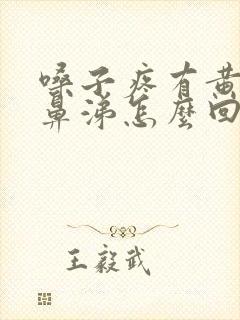 嗓子疼有黄
鼻涕怎麼回
王毅武